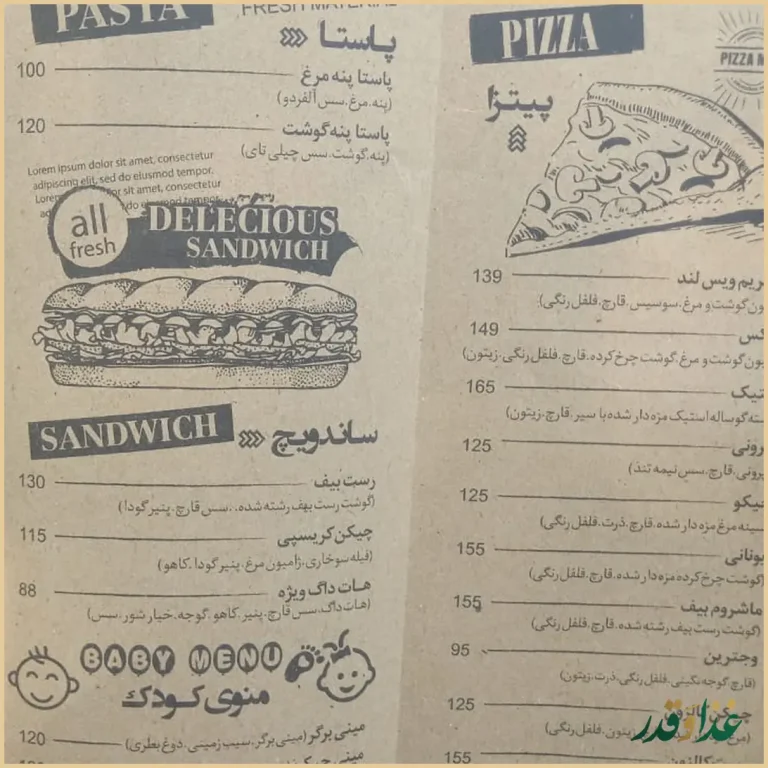 PASTA
FRESH MATERIAL
پاستا
پاستا پنه مرغ 100
(پنه.مرغ.سس آلفردو)
پاستا پنه گوشت 120
(پنه.گوشت.سس چیلی تای)
Lorem ipsum dolor sit amet, consectetur
adipiscing elit, sed do eiusmod tempor.
Lorem sit amet, consectetur
do eiusmod tempor
all
fresh
DELECIOUS
SANDWICH
SANDWICH
ساندویچ
رست بیف 130
(گوشت رست بیف رشته شده..سس قارچ.پنیر گودا)
چیکن کریسپی 115
(فیله سوخاری.ژامبون مرغ.پنیر گودا.کاهو)
هات داگ ویژه 88
(هات داگ.سس قارچ.پنیر.کاهو.گوجه.خیار شور.سس)
BABY MENU
منوی کودک
مینی برگر (مینی برگر.سیب زمینی.دوغ بطری) 120
PIZZA
پیتزا
PIZZA
ویس لند 139
گوشت و مرغ.سوسیس.قارچ.فلفل رنگی)
149
گوشت و مرغ.گوشت چرخ کرده.قارچ.فلفل رنگی.زیتون)
165
گوساله استیک مزه دار شده با سیر.قارچ.زیتون)
125
قارچ.سس نیمه تند)
125
سینه مرغ مزه دار شده.قارچ.ذرت.فلفل رنگی)
یونانی 155
(گوشت چرخ کرده مزه دار شده.قارچ.فلفل رنگی)
ماشروم بیف 155
(گوشت رست بیف رشته شده.قارچ.فلفل رنگی)
وجترین 95
(قارچ گوجه نگینی.فلفل رنگی.ذرت.زیتون)
125
زیتون.فلفل رنگی)
155
غذا و قدر